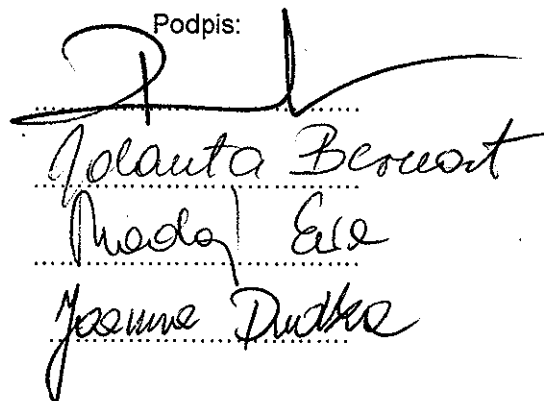 Podpis:
Jolanta Bernart
Madaj Ewa
Joanna Dudka